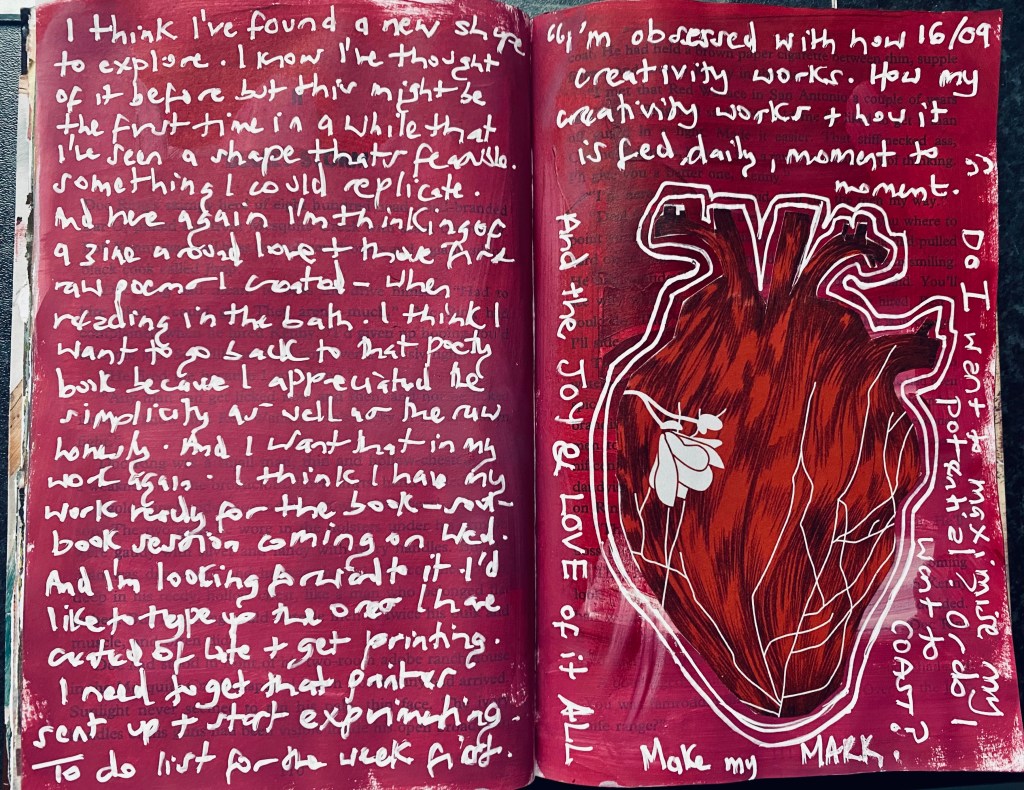 I think I've found a new shape
to explore. I know I've thought
of it before but this might be
the first time in a while that
I've seen a shape thats feasible.
something I could replicate.
And here again I'm thinking of
a zine around love + those first
raw poems I created - when
reading in the bath I think I
want to go back to that poety
book because I appreciated the
simplicity as well as the raw
honesty. And I want that in my
work again. I think I have my
work ready for the book-
book session coming on Wed.
And I'm looking forward to it. I'd
like to type up the ones I have
created of late + get printing.
I need to get that printer
sent up + start exprimenting.
To do list for the week first.
16/09
"I'm obsessed with how
creativity works. How my
creativity works + how it
is fed, daily, moment to
moment.
And the Joy & LOVE of it ALL
Do I want to maximise my
potential? Or do I
want to
COAST?
Make my MARK